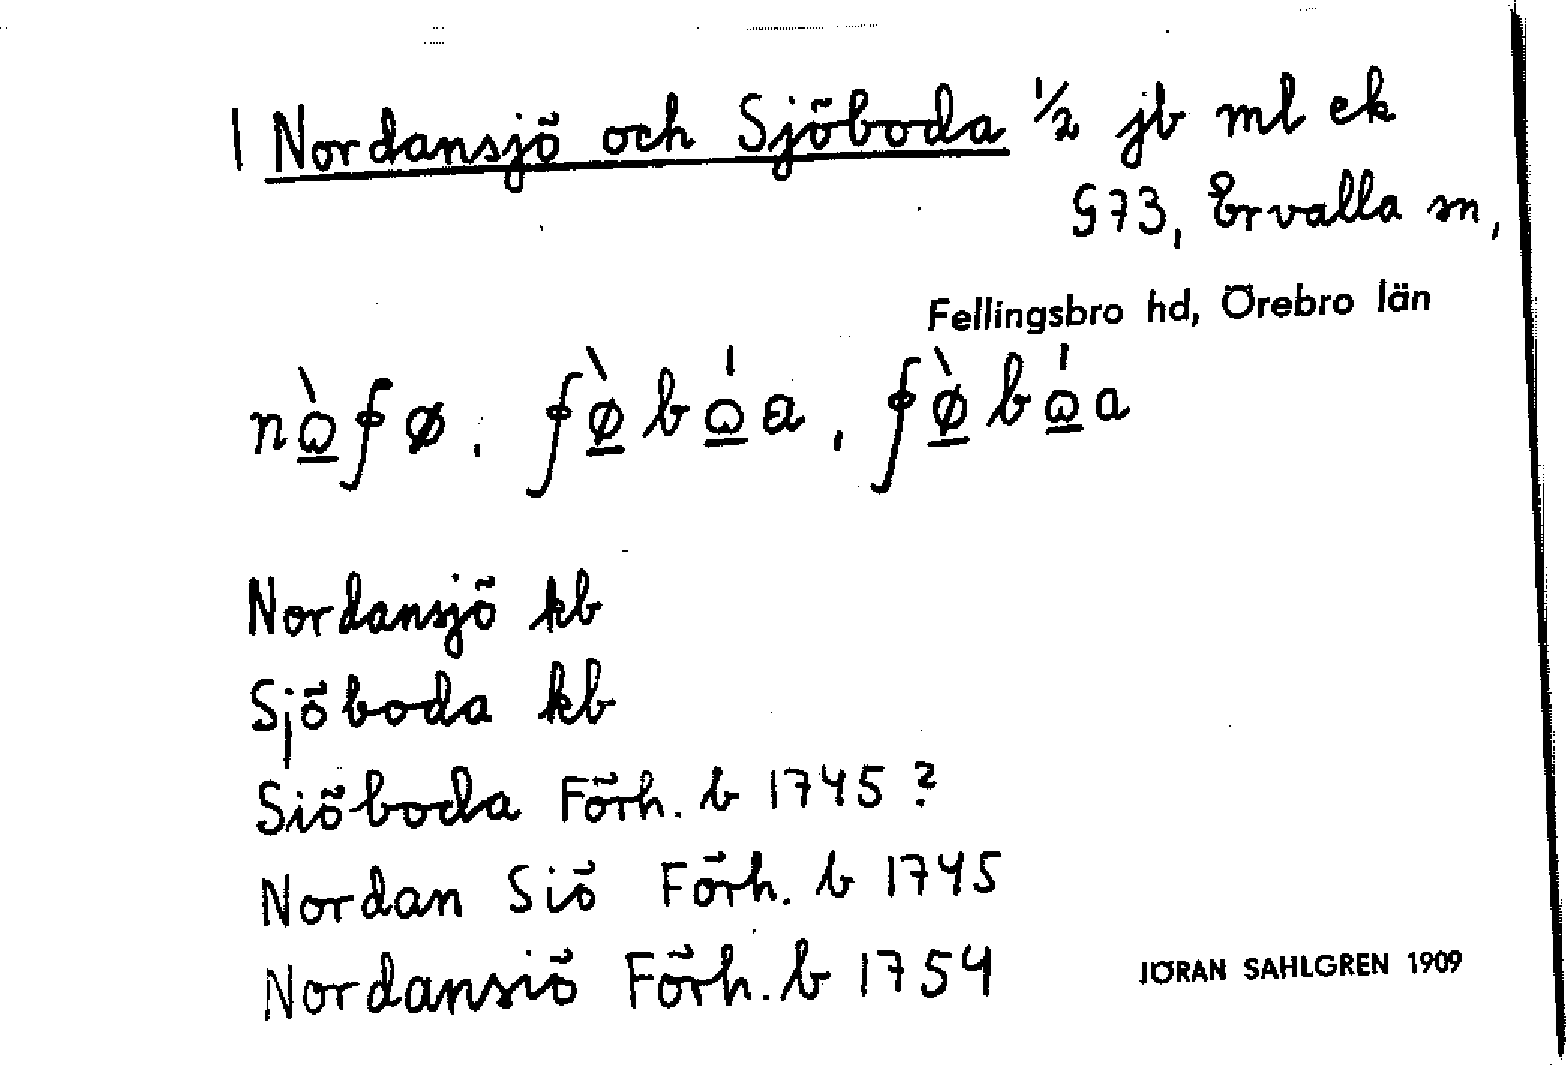 1 Nordansjö och Sjöboda 1/2 jb ml ek
§73, Ervalla sn,
Fellingsbro hd, Örebro län
Nordansjö kb
Sjöboda kb
Siöboda Förh. b 1745 ?
Nordan Siö Förh. b 1745
Nordansiö Förh. b 1754
JÖRAN SAHLGREN 1909